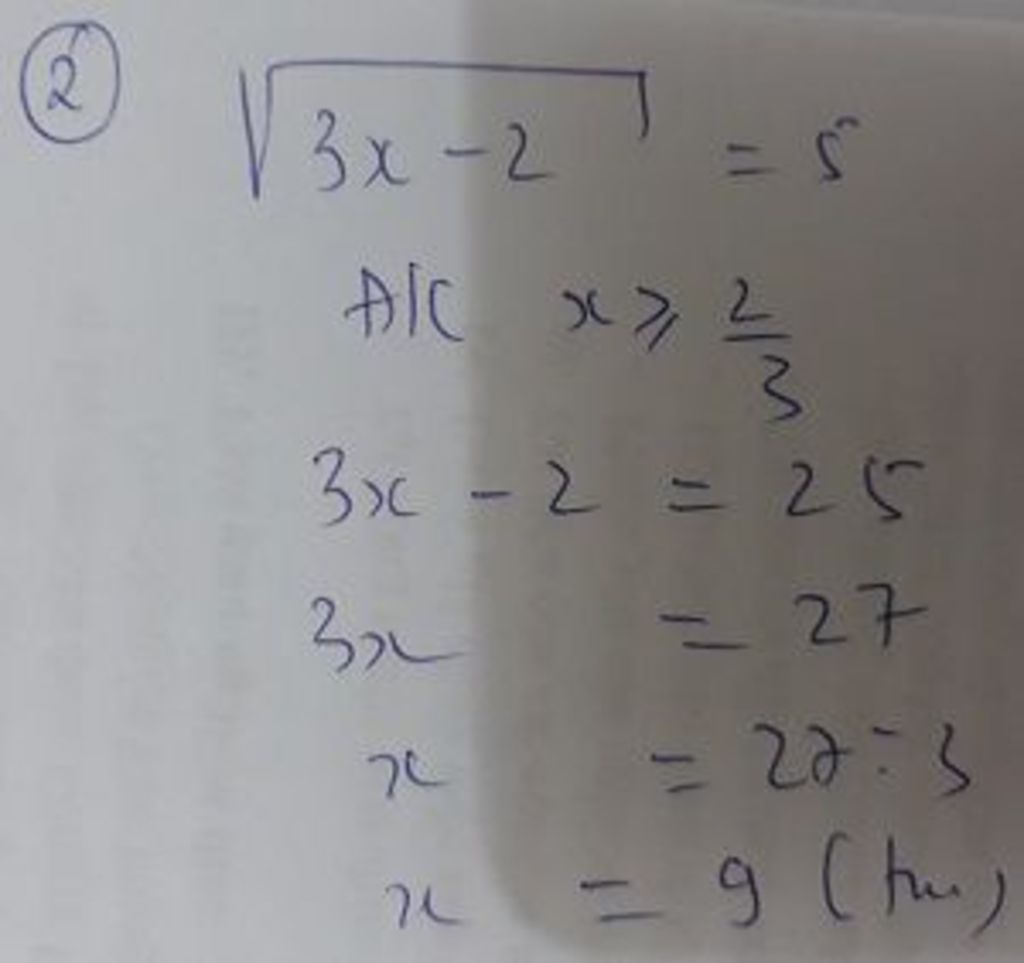 ② √(3x - 2) = 5
ĐK x ≥ 2/3
3x - 2 = 25
3x = 27
x = 27 : 3
x = 9 (tm)